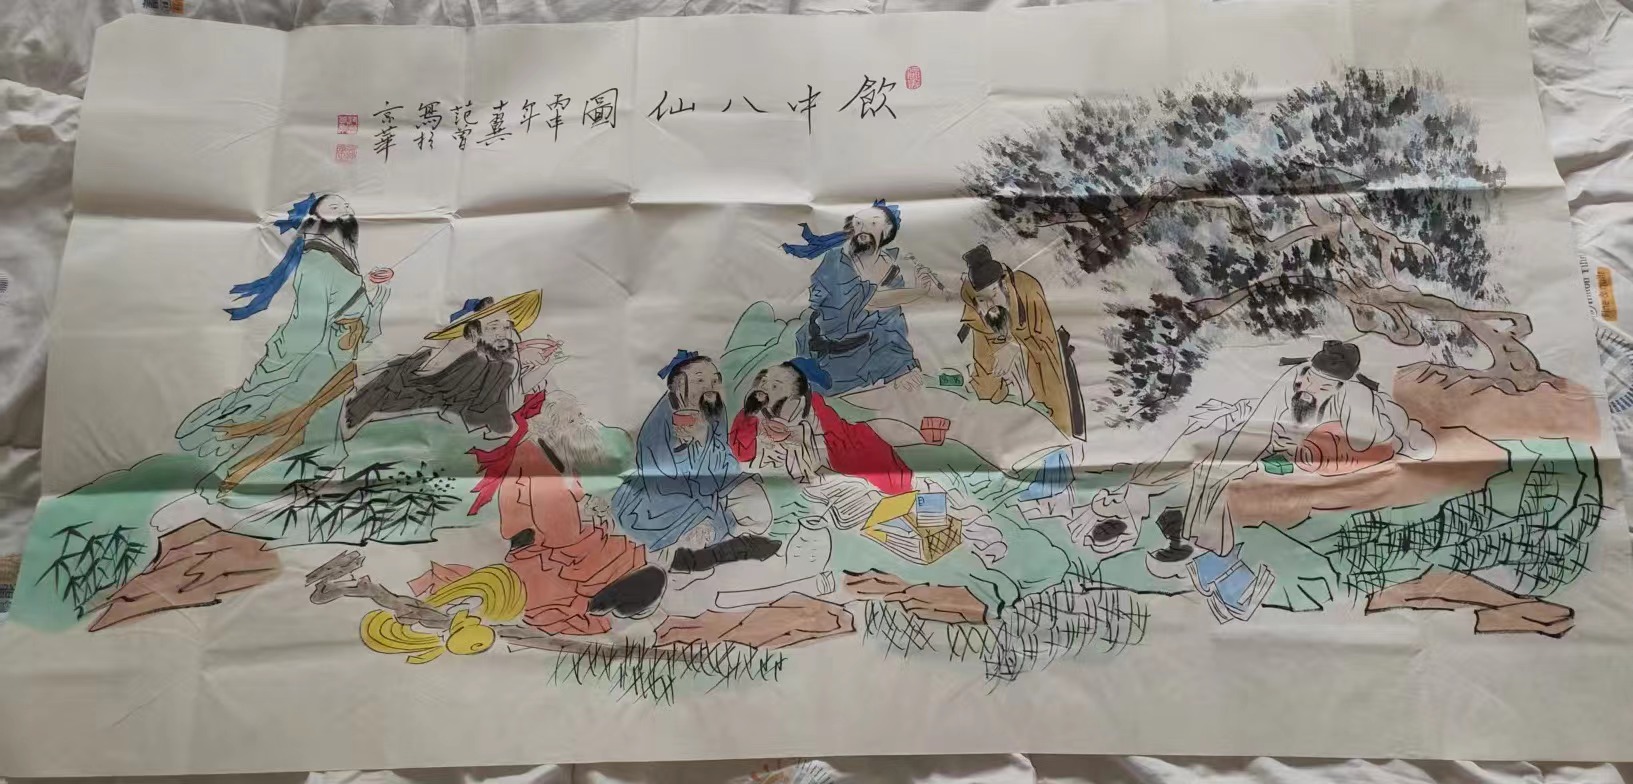 飲中八仙圖
年
十翼
范曾
寫於
京華